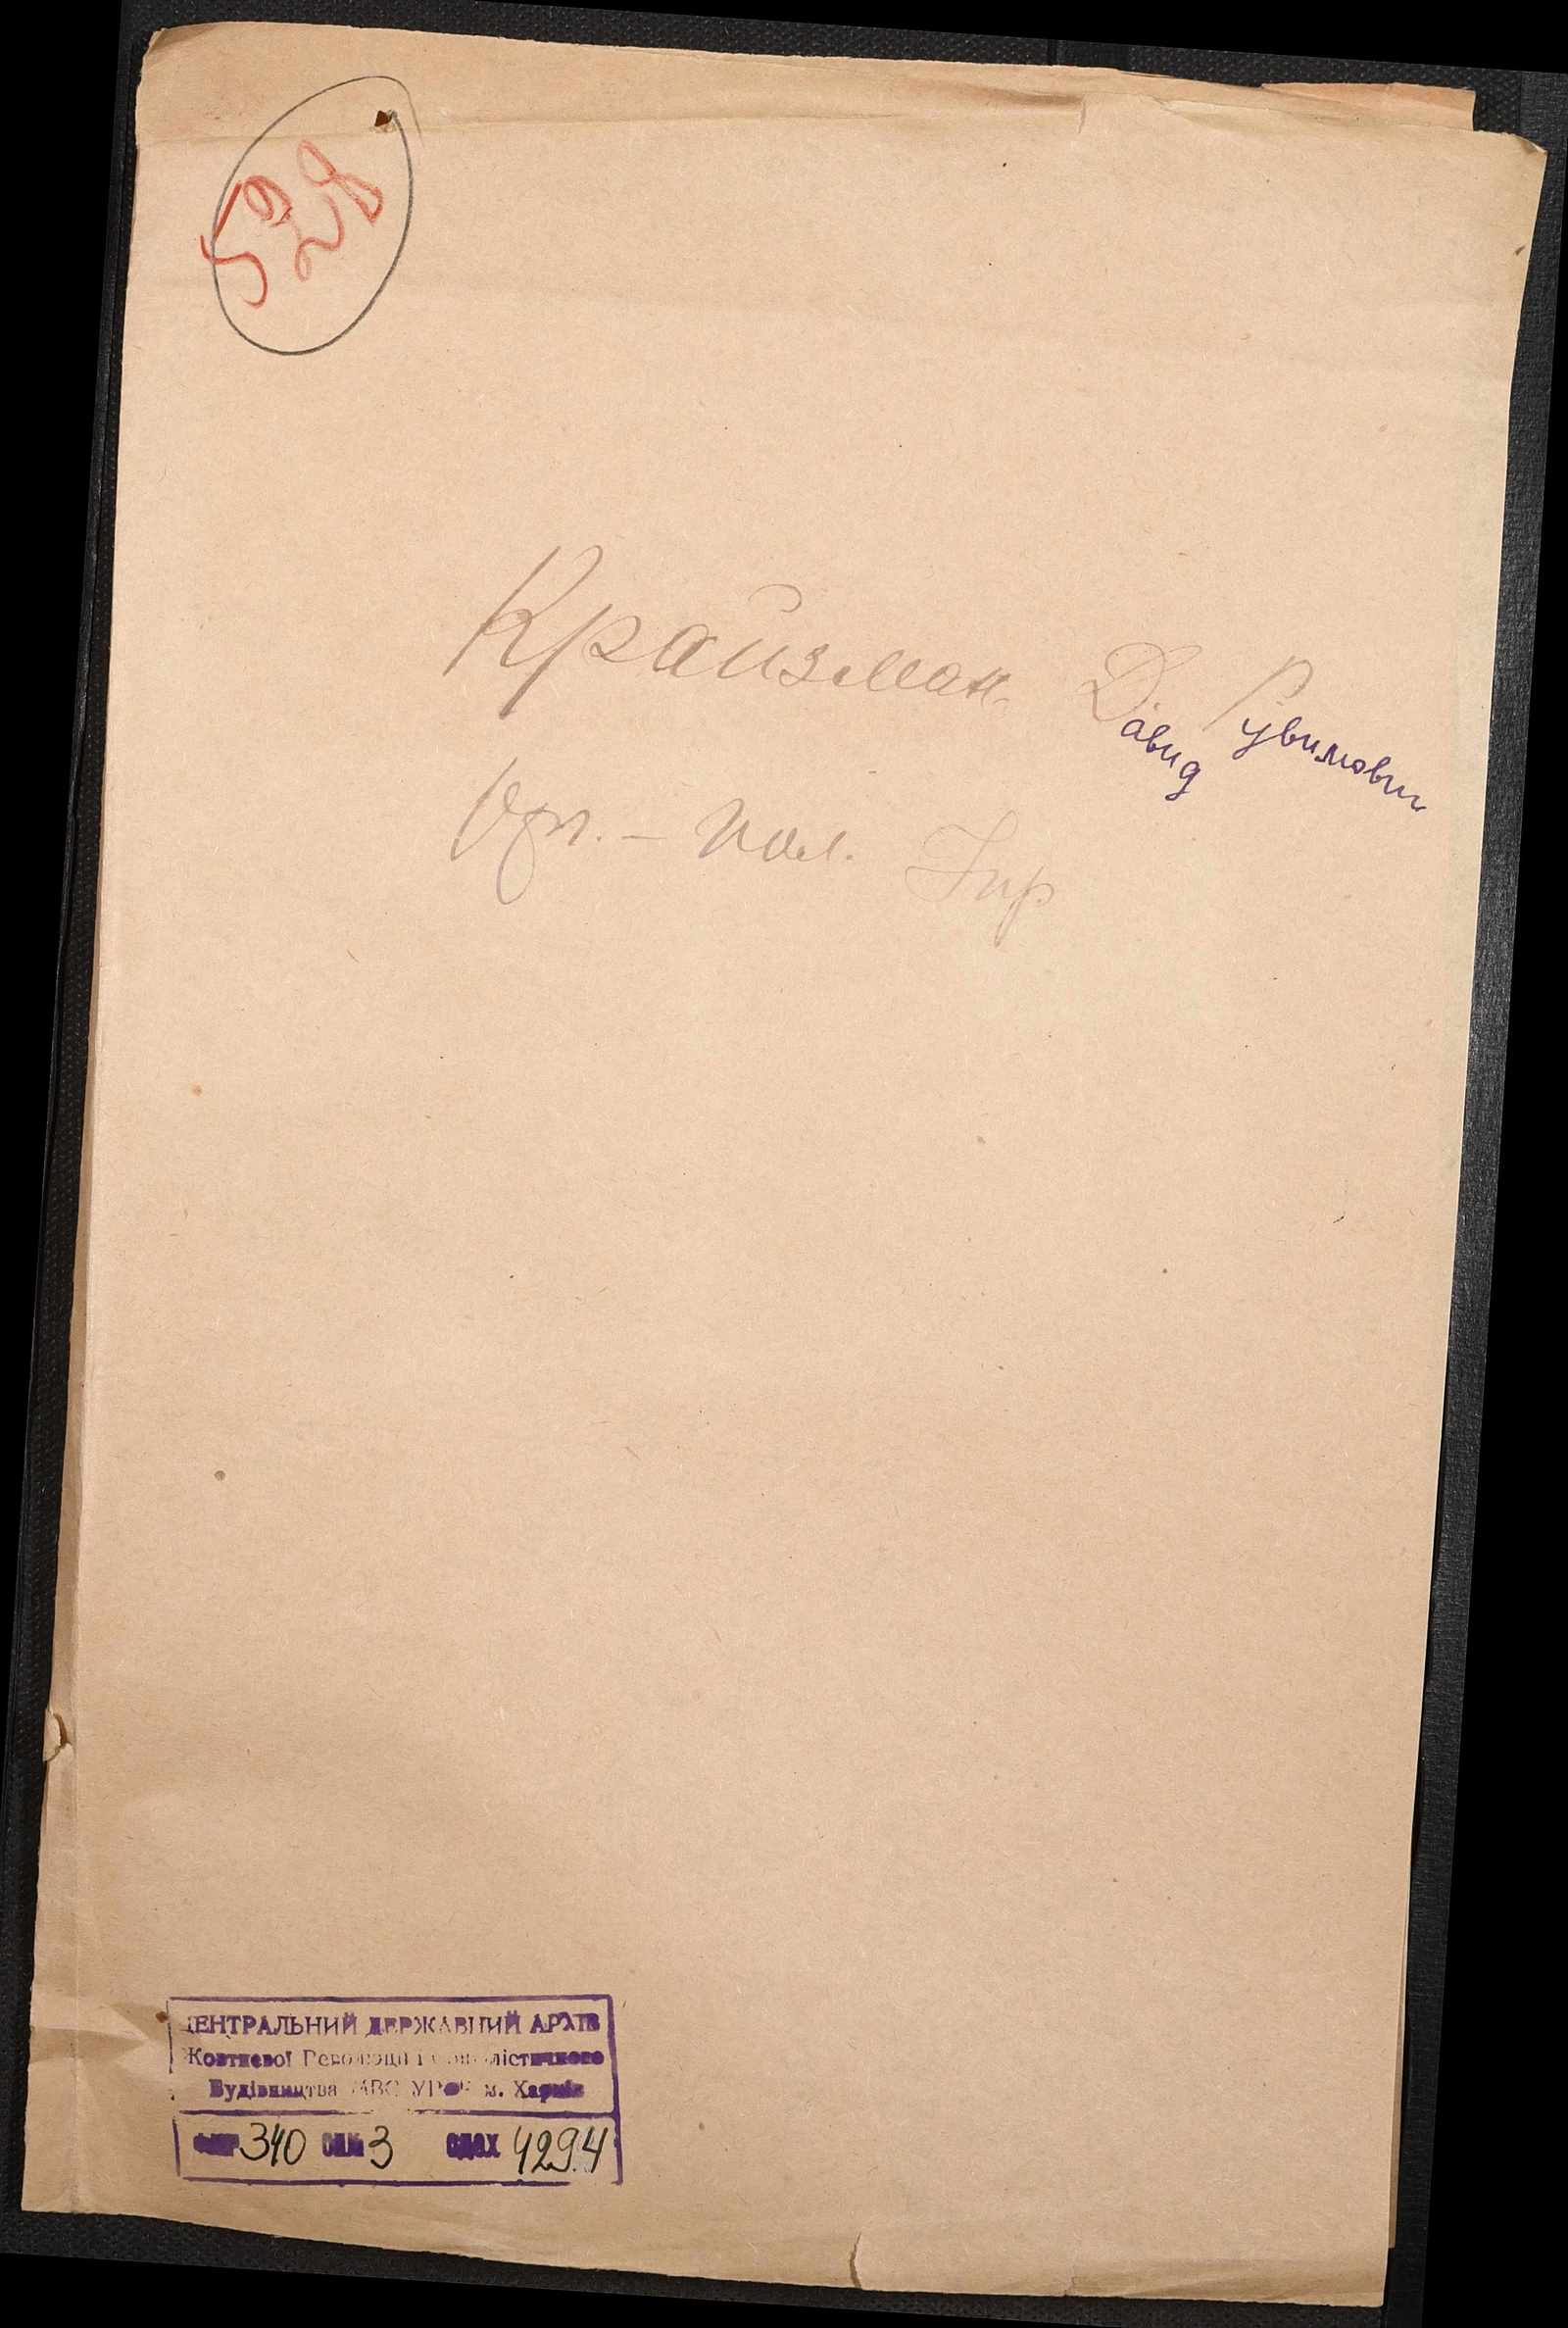 528
Крайзман Давид Рувимович
Орг. – пол.
ЦЕНТРАЛЬНИЙ ДЕРЖАВНИЙ АРХІВ
Жовтневої Революції і Соціалістичного
Будівництва УРСР м. Харків
340 3 ОДОХ 4294